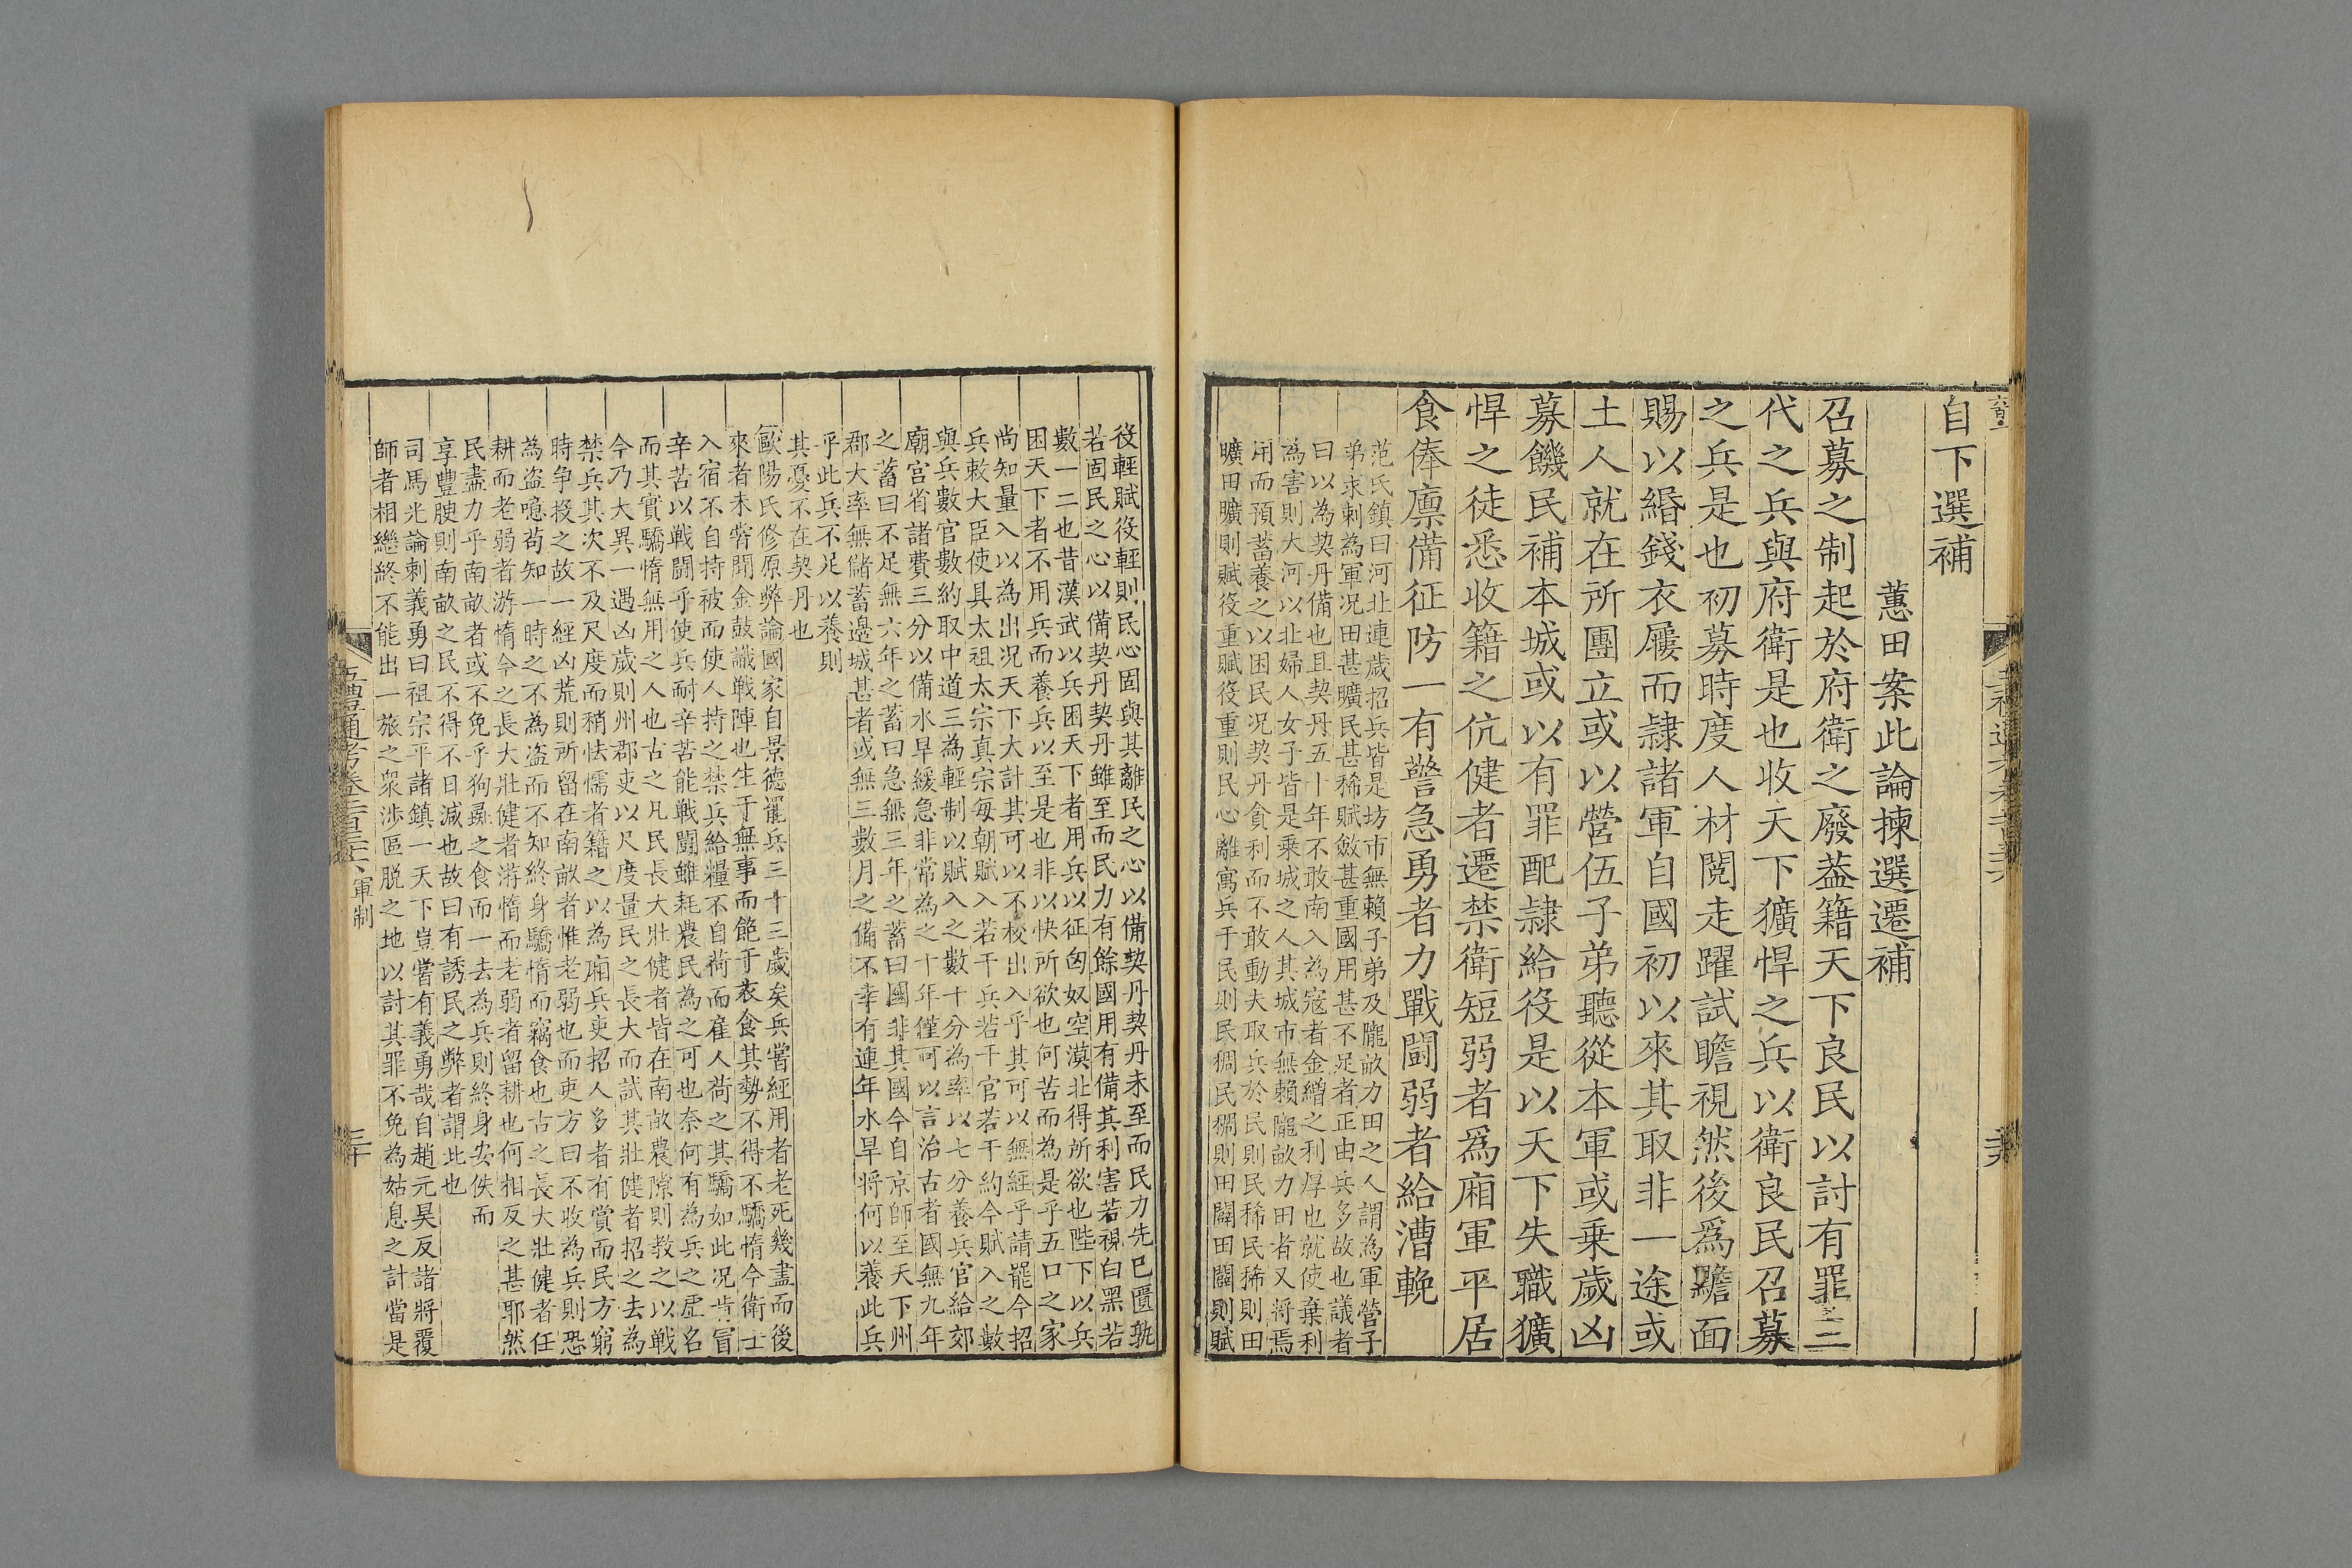 自下選補
蕙田案此論揀選遷補
召募之制起於府衛之廢葢籍天下良民以討有罪三
代之兵與府衛是也收天下獷悍之兵以衛良民召募
之兵是也初募時度人材閱走躍試瞻視然後爲黵面
賜以緡錢衣屨而隷諸軍自國初以來其取非一途或
土人就在所團立或以營伍子弟聽從本軍或乗歲凶
募饑民補本城或以有罪配隷給役是以天下失職獷
悍之徒悉收籍之伉健者遷禁衛短弱者爲廂軍平居
食俸廩備征防一有警急勇者力戰鬪弱者給漕輓
范氏鎮曰河北連歲招兵皆是坊市無賴子弟及隴畝力田之人謂為軍營子
弟求刺為軍况田甚曠民甚稀賦斂甚重國用甚不足者正由兵多故也議者
曰以為契丹備也且契丹五十年不敢南入為寇者金繒之利厚也就使棄利
為害則大河以北婦人女子皆是乘城之人其城市無賴隴畝力田者又将焉
用而預蓄養之以困民况契丹貪利而不敢動夫取兵於民則民稀民稀則田
曠田曠則賦役重賦役重則民心離寓兵于民則民稠民稠則田闢田闢則賦
役輕賦役輕則民心固與其離民之心以備契丹契丹未至而民力先已匱孰
若固民之心以備契丹契丹雖至而民力有餘國用有備其利害若視白黑若
數一二也昔漢武以兵困天下者用兵以征匈奴空漠北得所欲也陛下以兵
困天下者不用兵而養兵以至是也非以快所欲也何苦而為是乎五口之家
尚知量入以為出况天下大計其可以不校出入乎其可以無經乎請罷今招
兵敕大臣使具太祖太宗真宗每朝賦入若干兵若干官若干約今賦入之數
與兵數官數約取中道三為輕制以賦入之數十分為率以七分養兵官給郊
廟宮省諸費三分以備水旱緩急非常為之十年僅可以言治古者國無九年
之蓄曰不足無六年之蓄曰急無三年之蓄曰國非其國今自京師至天下州
郡大率無儲蓄邉城甚者或無三數月之備不幸有連年水旱将何以養此兵
乎此兵不足以養則
其憂不在契丹也
歐陽氏修原弊論國家自景德罷兵三十三歲矣兵嘗經用者老死幾盡而後
來者未嘗聞金鼓識戰陣也生于無事而飽于衣食其勢不得不驕惰今衛士
入宿不自持被而使人持之禁兵給糧不自荷而雇人荷之其驕如此况肯冒
辛苦以戰鬪乎使兵耐辛苦能戰鬪雖耗農民為之可也奈何有為兵之虛名
而其實驕惰無用之人也古之凡民長大壯健者皆在南畝農隙則教之以戰
今乃大異一遇凶歲則州郡吏以尺度量民之長大而試其壯健者招之去為
禁兵其次不及尺度而稍怯懦者籍之以為廂兵吏招人多者有賞而民方窮
時争投之故一經凶荒則所留在南畝者惟老弱也而吏方曰不收為兵則恐
為盗噫茍知一時之不為盗而不知終身驕惰而竊食也古之長大壯健者任
耕而老弱者游惰今之長大壯健者游惰而老弱者留耕也何相反之甚耶然
民盡力乎南畝者或不免乎狗彘之食而一去為兵則終身安佚而
享豐腴則南畝之民不得不日減也故曰有誘民之弊者謂此也
司馬光論刺義勇曰祖宗平諸鎮一天下豈嘗有義勇哉自趙元昊反諸將覆
師者相繼終不能出一旅之衆渉區脱之地以討其罪不免為姑息之計當是
五禮通考卷二百三十六 軍制
三十